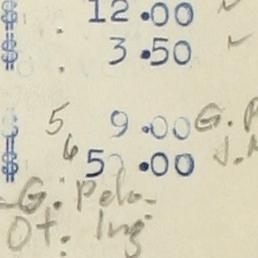 $ 12.00 ✓
$ . 3.50 ✓
$ 5 9.00 G. P
$ 6 5 .00 J.
-G. Pelo-
Ot. Ing